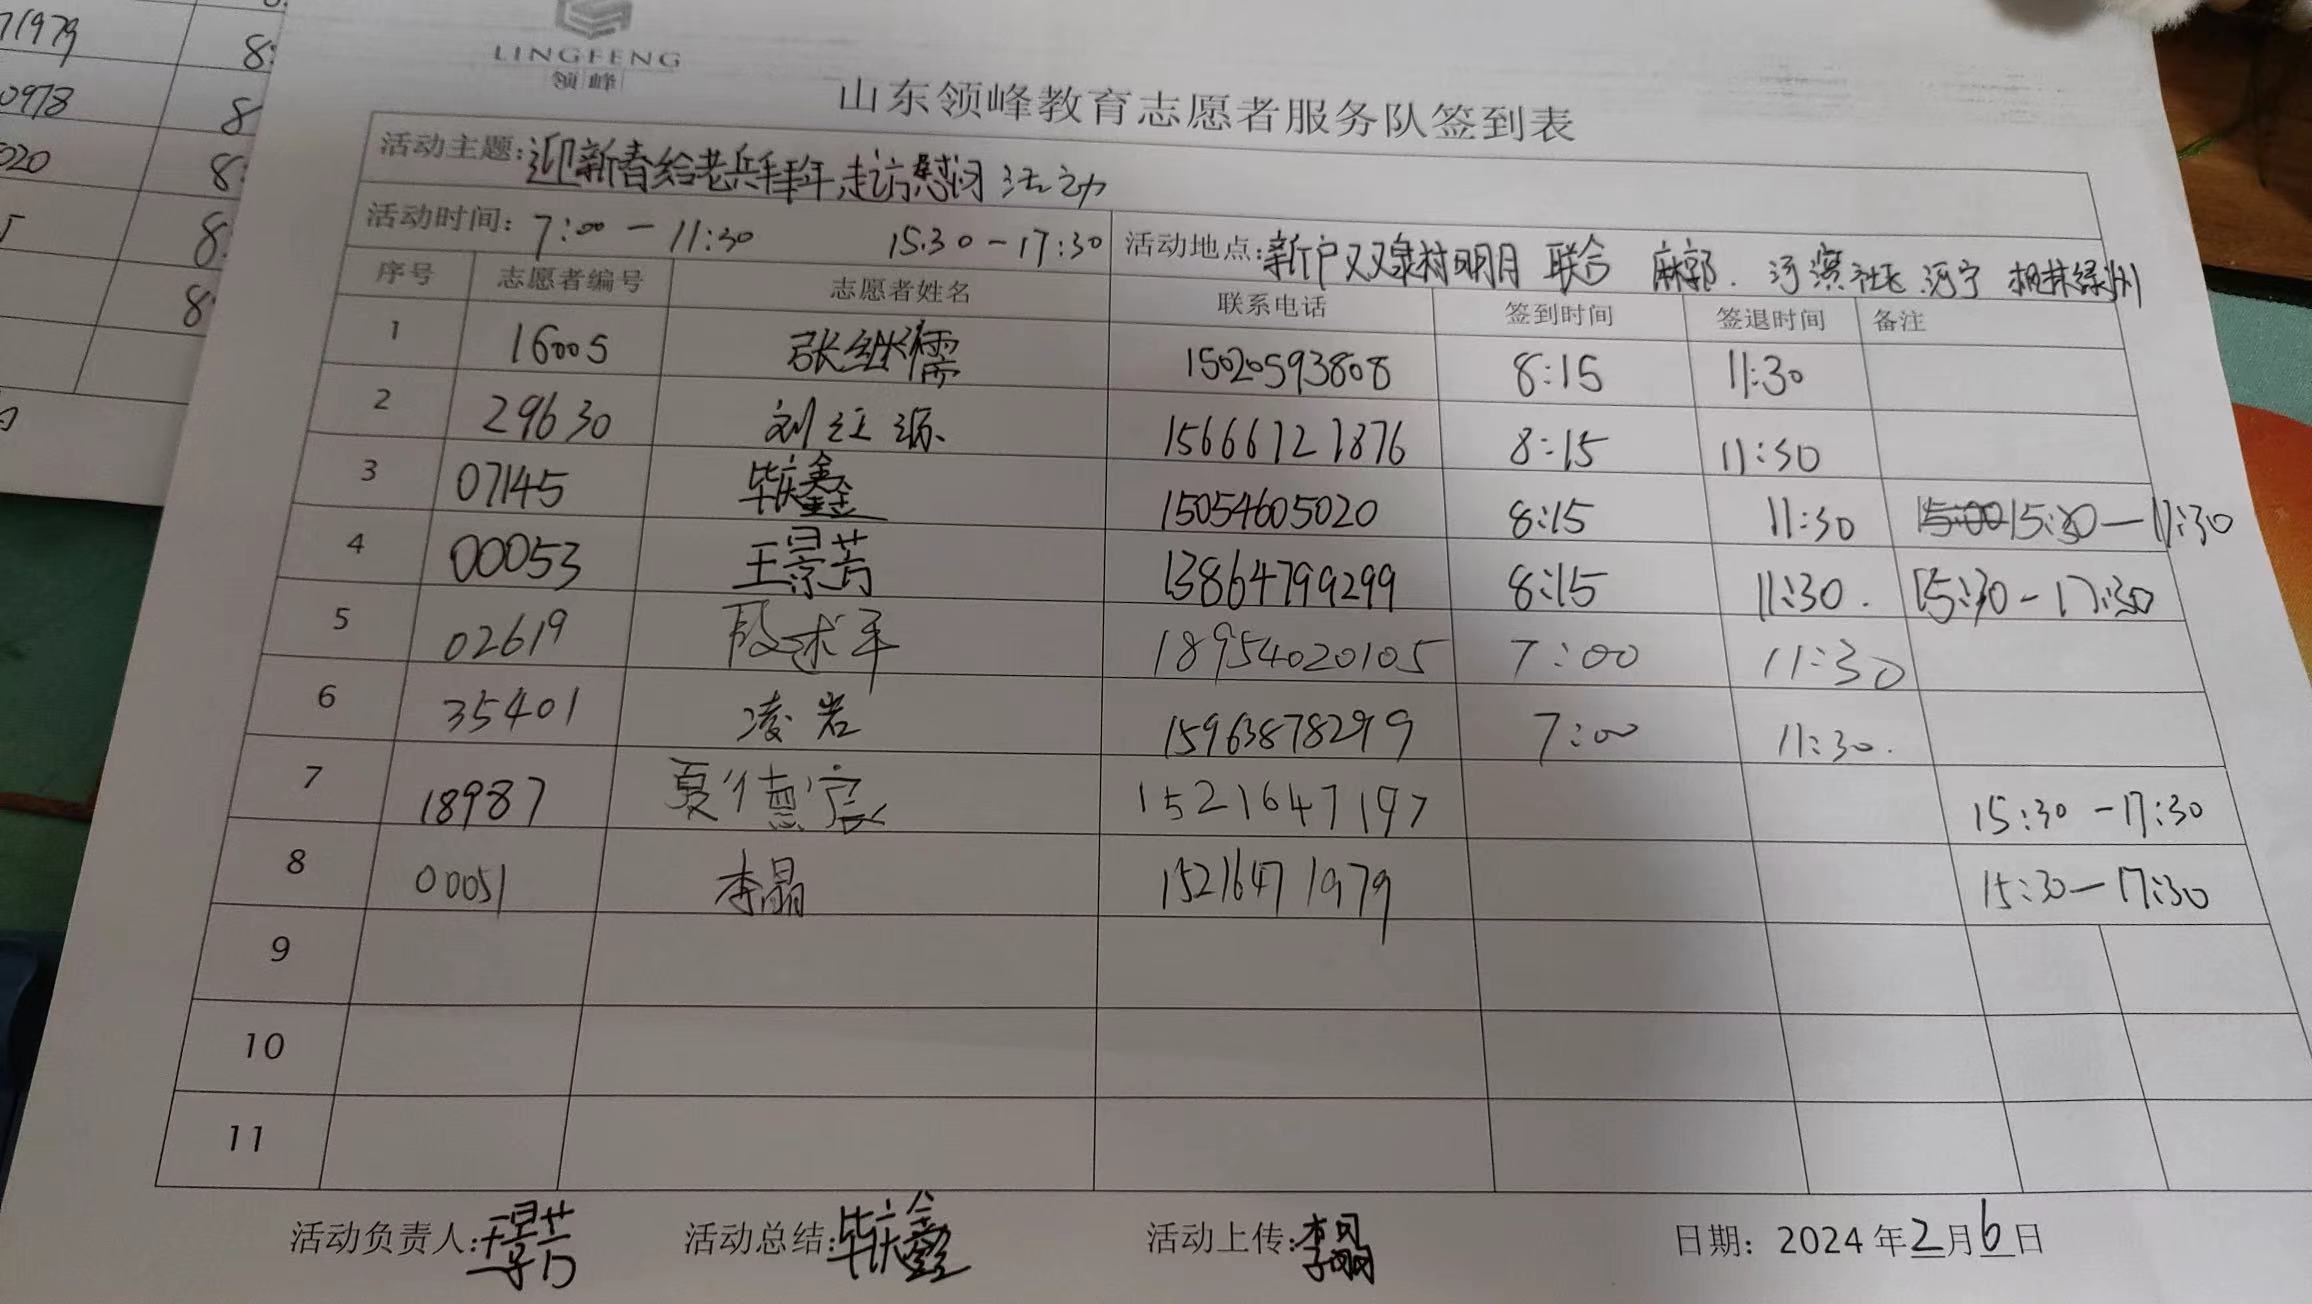 71979 8:
0978 8
020 8:
8:
8
LINGFENG
领峰
山东领峰教育志愿者服务队签到表
活动主题:迎新春给老兵拜年,走访慰问活动
活动时间: 7:00-11:30 15:30-17:30 活动地点:新户双泉村明月 联合 麻郭. 河滨社区.河宁 枫林绿洲
序号 志愿者编号 志愿者姓名 联系电话 签到时间 签退时间 备注
1 16005 张继儒 15020593808 8:15 11:30
2 29630 刘红源 15666121876 8:15 11:30
3 07145 毕庆鑫 15054605020 8:15 11:30 15:00 15:30-11:30
4 00053 王景芳 13864799299 8:15 11:30. 15:30-17:30
5 02619 段求军 18954020105 7:00 11:30
6 35401 凌岩 15963878299 7:00 11:30.
7 18987 夏德宸 1521647197 15:30-17:30
8 00051 李晶 15216471979 15:30-17:30
9
10
11
活动负责人:王景芳 活动总结:毕庆鑫 活动上传:李晶 日期: 2024年2月6日